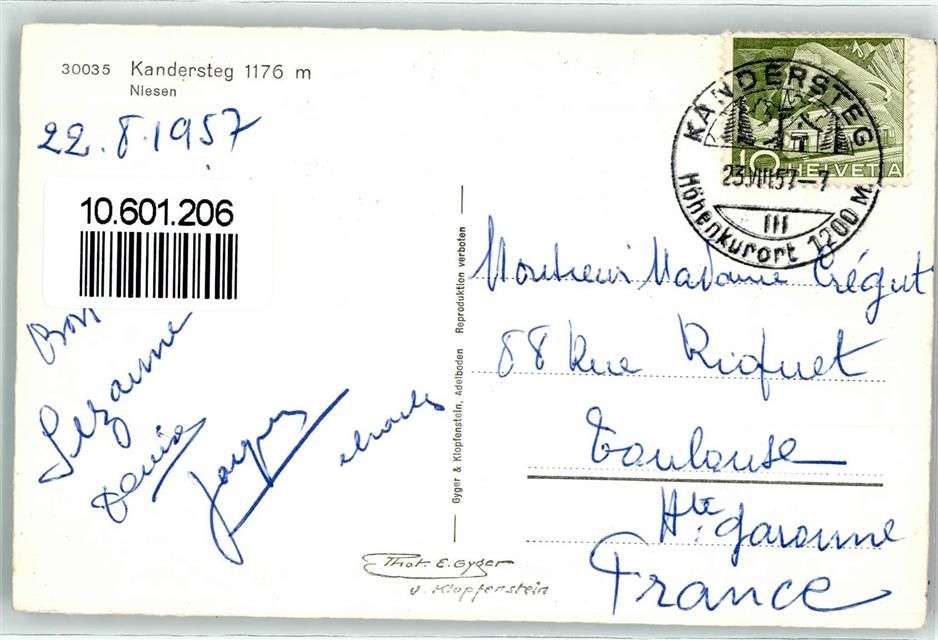 30035 Kandersteg 1176 m
Niesen
22.8.1957
10.601.206
Suzanne
Denise
Jacques
Charles
Gyger & Klopfenstein, Adelboden Reproduktion verboten
KANDERSTEG
23.VIII.57-7
III
Höhenkurort 1200 M.
10 HELVETIA
Monsieur Madame Crégut
88 Rue Riquet
Toulouse
Hte. Garonne
France
Phot. E. Gyger
u. Klopfenstein